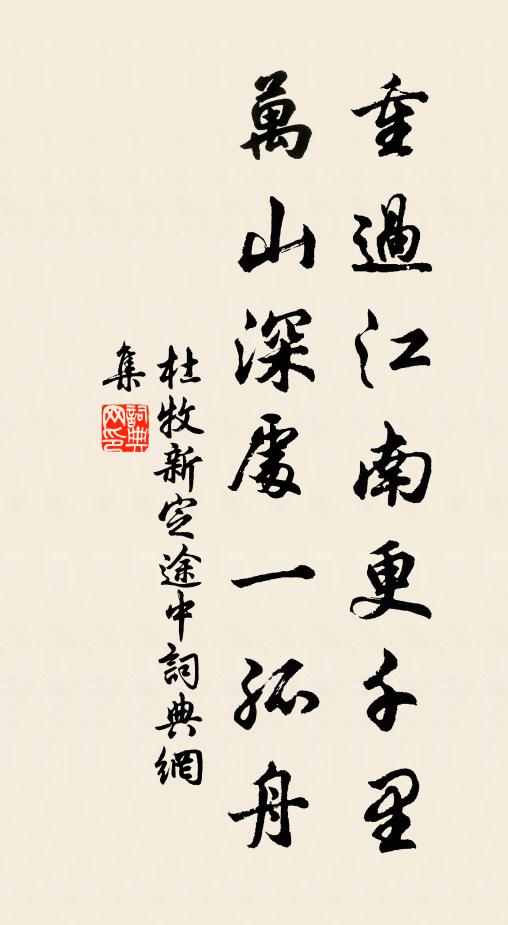 重過江南更千里
萬山深處一孤舟
杜牧新定途中詞典網
集
詞典
网印